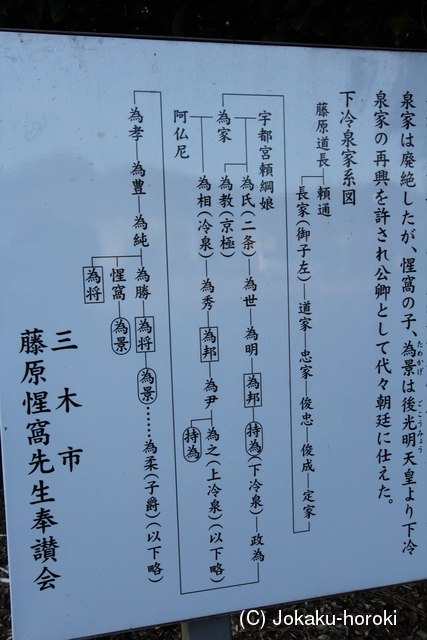 泉家は廃絶したが、惺窩の子、為景は後光明天皇より下冷
ためかげ
ごこうみょう
泉家の再興を許され公卿として代々朝廷に仕えた。
下冷泉家系図
藤原道長
頼通
長家(御子左)
道家
忠家
俊忠
俊成
定家
宇都宮頼綱娘
為家
阿仏尼
為氏(二条)
為世
為明
為邦
持為(下冷泉)
政為
為教(京極)
為相(冷泉)
為秀
為邦
為尹
為之(上冷泉)(以下略)
持為
為孝
為豊
為純
為勝
為将
為景……為柔(子爵)(以下略)
惺窩
為景
為将
三木市
藤原惺窩先生奉讃会
(C) Jokaku-horoki